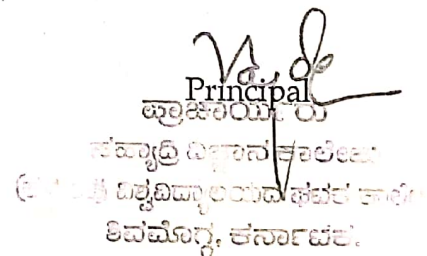 Principal
ಪ್ರಾಚಾರ್ಯರು
ಸಹ್ಯಾದ್ರಿ ವಿಜ್ಞಾನ ಕಾಲೇಜು
ವಿಶ್ವವಿದ್ಯಾಲಯದ ಘಟಕ ಕಾಲೇಜು
ಶಿವಮೊಗ್ಗ, ಕರ್ನಾಟಕ.